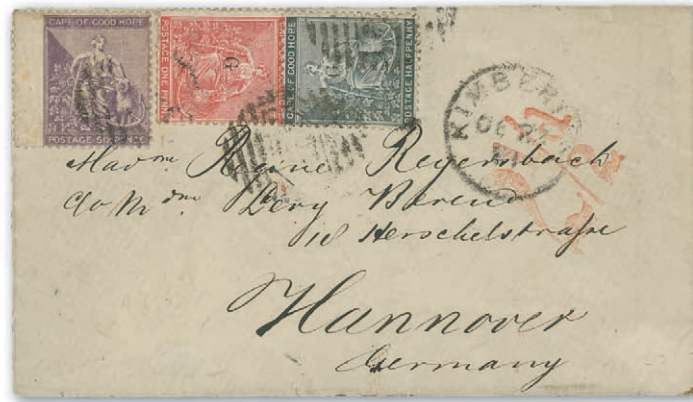 CAPE OF GOOD HOPE
POSTAGE SIX PENCE
POSTAGE ONE PENNY
G
CAPE OF GOOD HOPE
G
POSTAGE HALFPENNY
KIMBERLEY
OC 27
81
Madme Regine Regensbach
c/o Mdm Levy Berend
18 Herschelstraße
Hannover
Germany